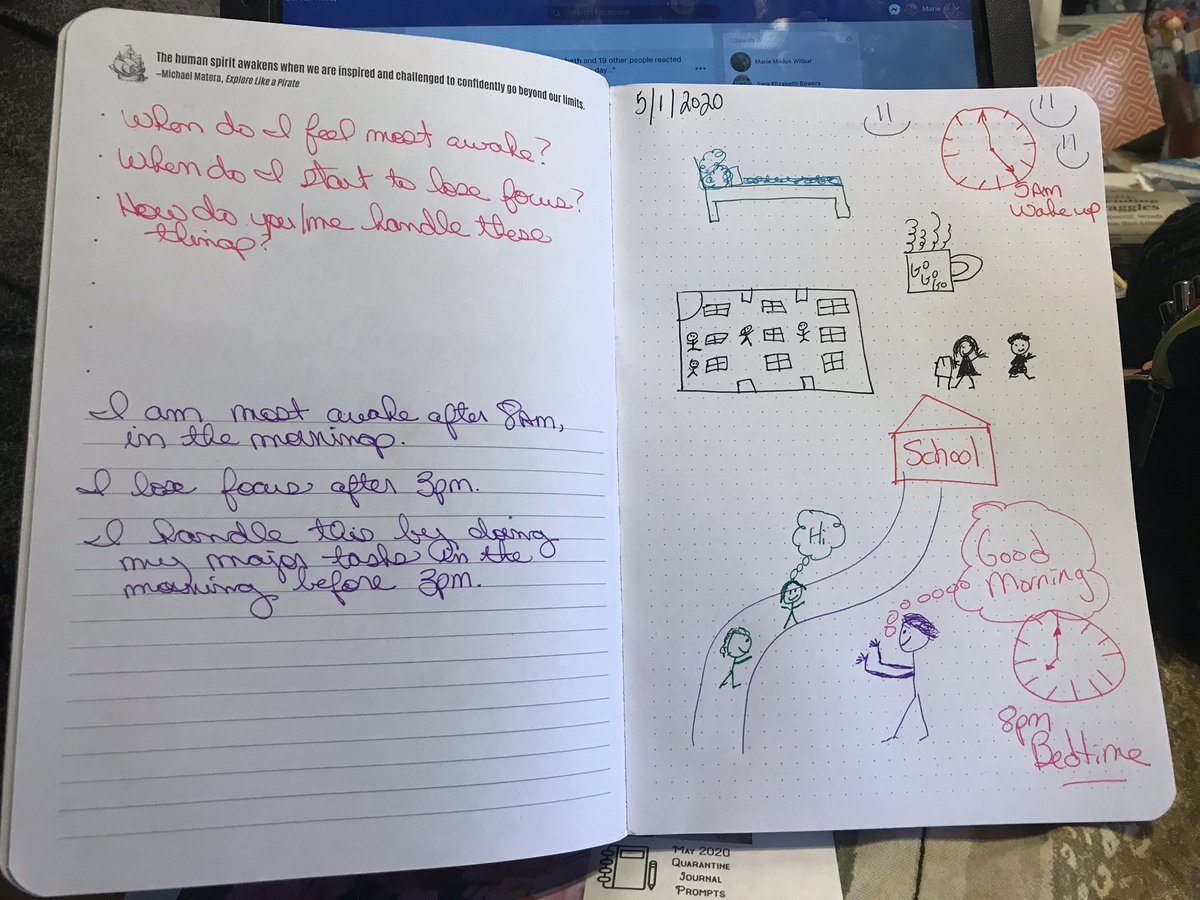 Search Facebook
Marie
beth and 19 other people reacted
day..."
Search
Marie Miklus Wilbur
Sara Elizabeth Bowers
The human spirit awakens when we are inspired and challenged to confidently go beyond our limits.
—Michael Matera, Explore Like a Pirate
When do I feel most awake?
When do I start to lose focus?
How do you/me handle these
things?
I am most awake after 8AM,
in the morning.
I lose focus after 3pm.
I handle this by doing
my major tasks in the
morning before 3pm.
5/1/2020
5Am
Wake up
Go
Go
Go
School
Hi
Good
Morning
8pm
Bedtime
May 2020
Quarantine
Journal
Prompts